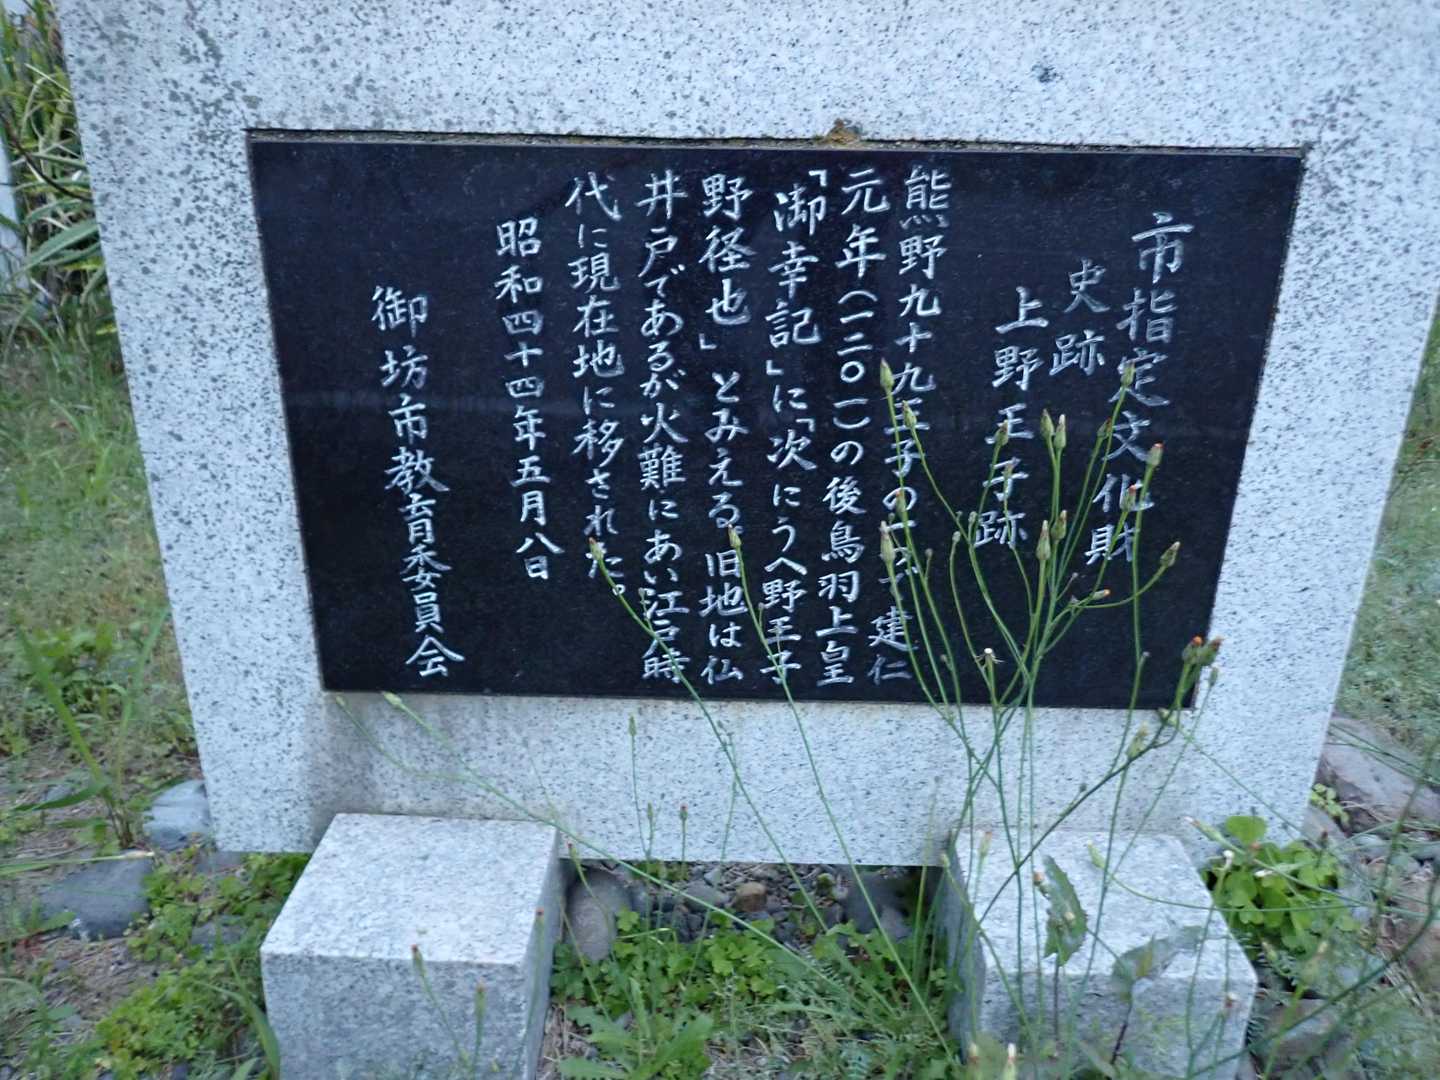 市指定文化財
史跡
上野王子跡
熊野九十九王子の一つで建仁
元年(一二〇一)の後鳥羽上皇
「御幸記」に「次にうへ野王子
野径也」とみえる。旧地は仏
井戸であるが火難にあい江戸時
代に現在地に移された。
昭和四十四年五月八日
御坊市教育委員会